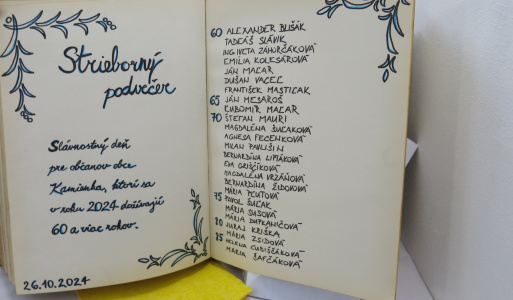 Strieborný
podvečer
Slávnostný deň
pre občanov obce
Kamienka, ktorí sa
v roku 2024 dožívajú
60 a viac rokov.
26.10.2024
60 ALEXANDER BLIŠÁK
TADEÁŠ SLÁVIK
ING. IVETA ZÁHURČÁKOVÁ
EMÍLIA KOLESÁROVÁ
JÁN MACAR
DUŠAN VACEĽ
FRANTIŠEK MASTIĽAK
65 JÁN MESAROŠ
ĽUBOMÍR MACAR
70 ŠTEFAN MAURI
MAGDALÉNA ŠUĽAKOVÁ
AGNESA FECENKOVÁ
MILAN PAVLIŠIN
BERNARDÍNA LIPTÁKOVÁ
EVA GRIŠČÍKOVÁ
MAGDALÉNA VRZÁŇOVÁ
BERNARDÍNA ŽIDOVOVÁ
MÁRIA
75 PAVOL ŠUĽAK
MÁRIA SUSOVÁ
MÁRIA
80 JURAJ KRIŠKA
MÁRIA ZSIDOVÁ
85 HELENA
MÁRIA ŠAFČÁKOVÁ